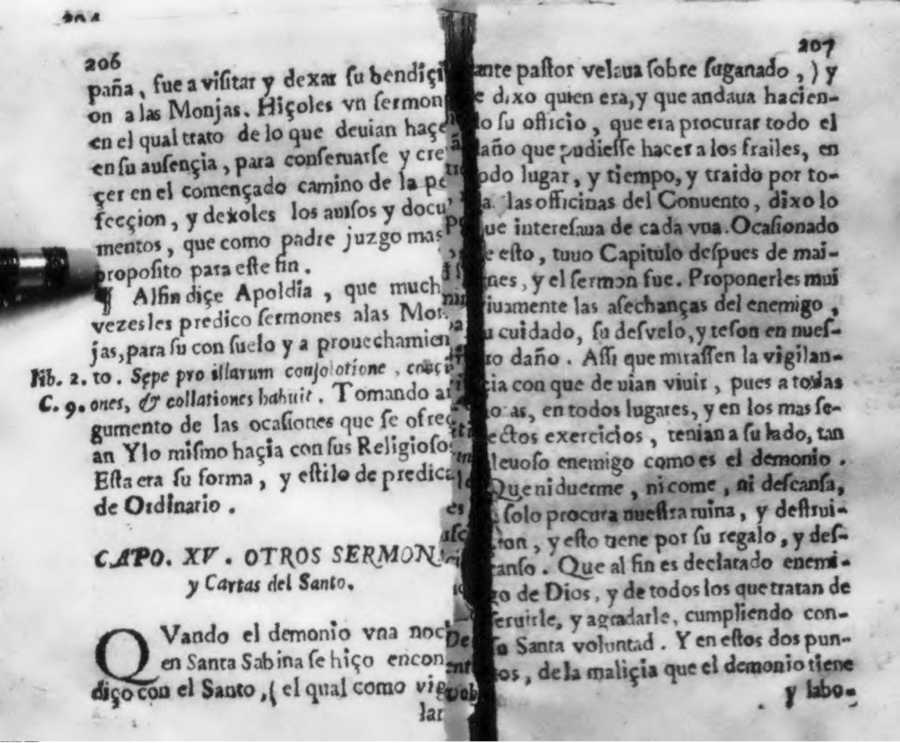 204
206
paña, fue a visitar y dexar su bendiçi
on a las Monjas. Hiçoles vn sermon
en el qual trato de lo que deuian haçe
en su ausençia, para conseruarse y cre
çer en el començado camino de la pe
fecçion, y dexoles los auisos y docu
mentos, que como padre juzgo mas
proposito para este fin.
¶ Alfin diçe Apoldia, que much
vezes les predico sermones alas Mon
jas, para su con suelo y a prouechamien
lib. 2. to. Sępe pro illarum consolotione,
C. 9. ones, & collationes habuit. Tomando ar
gumento de las ocasiones que se ofreç
an Ylo mismo haçia con sus Religioso
Esta era su forma, y estilo de predica
de Ordinario.
CAPO. XV. OTROS SERMON
y Cartas del Santo.
QVando el demonio vna noch
en Santa Sabina se hiço encon
diço con el Santo, ( el qual como vig
lan
207
ante pastor velaua sobre suganado, ) y
e dixo quien era, y que andaua hacien-
do su officio, que era procurar todo el
daño que pudiesse hacer a los frailes, en
odo lugar, y tiempo, y traido por to-
da las officinas del Conuento, dixo lo
que interesaua de cada vna. Ocasionado
e esto, tuuo Capitulo despues de mai-
nes, y el sermon fue. Proponerles mui
iuamente las asechanças del enemigo,
u cuidado, su desvelo, y teson en nues-
ro daño. Assi que mirassen la vigilan-
cia con que de uian viuir, pues a todas
oras, en todos lugares, y en los mas se-
ectos exercicios, tenian a su lado, tan
aleuoso enemigo como es el demonio.
Que ni duerme, ni come, ni descansa,
solo procura nuestra ruina, y destrui-
cion, y esto tiene por su regalo, y des-
canso. Que al fin es declarado enemi-
go de Dios, y de todos los que tratan de
seruirle, y agradarle, cumpliendo con-
su Santa voluntad. Y en estos dos pun-
tos, de la maliçia que el demonio tiene
y labo-